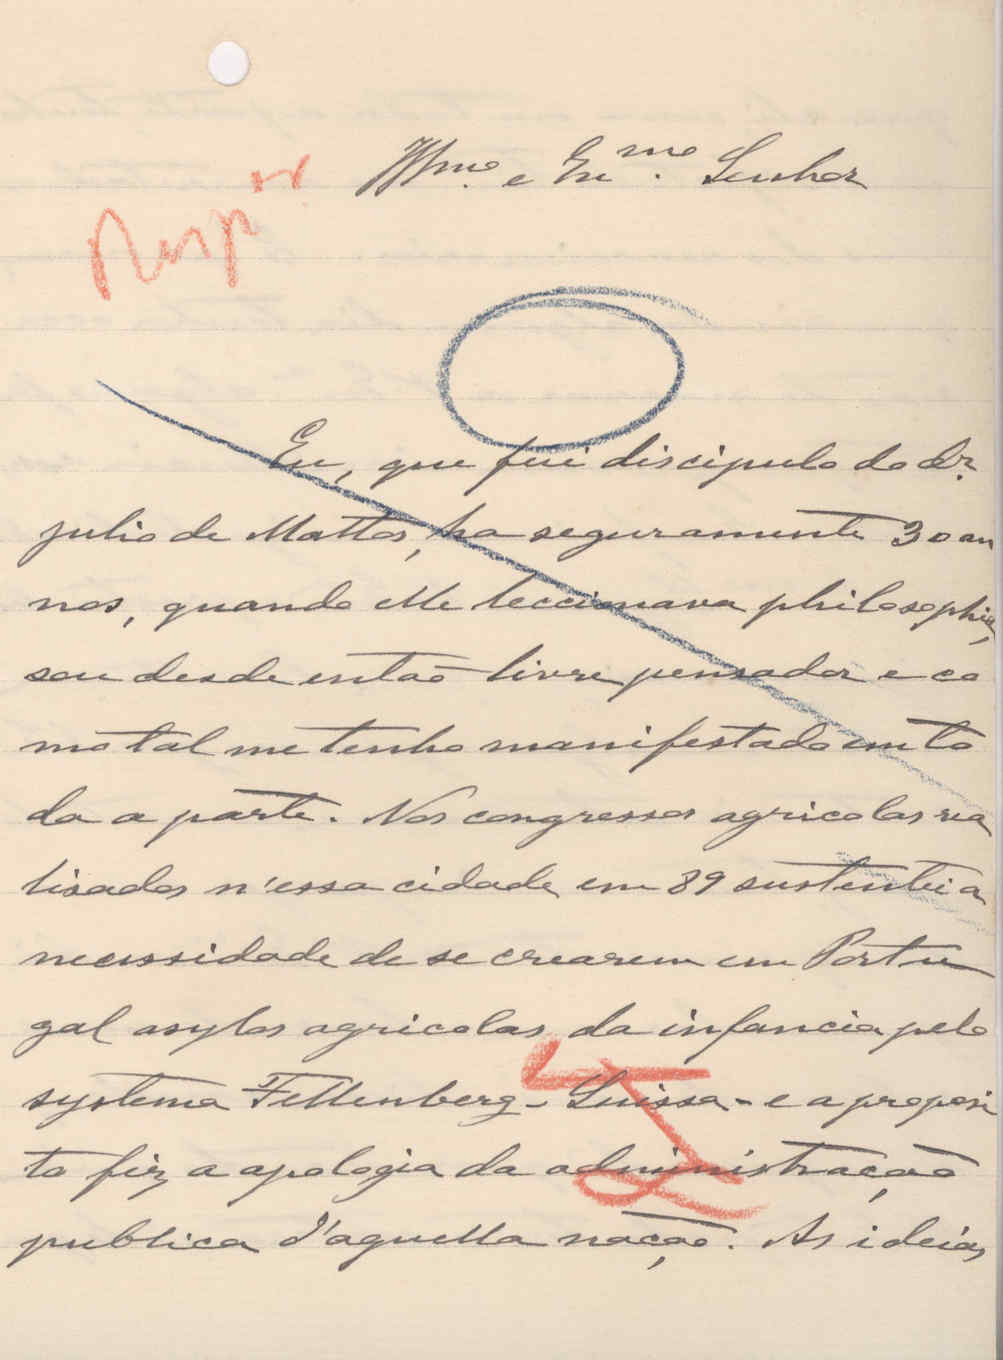 Illmo. e Exmo. Senhor
Resp or
Eu, que fui discipulo do dr.
Julio de Mattos, ha seguramente 30 an
nos, quando elle leccionava philosophia,
sou desde então livre pensador e co
mo tal me tenho manifestado em to
da a parte. Nos congressos agricolas rea
lisados n'essa cidade em 89 sustentei a
necessidade de se crearem em Portu
gal asylos agricolas da infancia pelo
systema Fellenberg - Suissa - e a proposi
to fiz a apologia da administração
publica d'aquella nação. As ideias